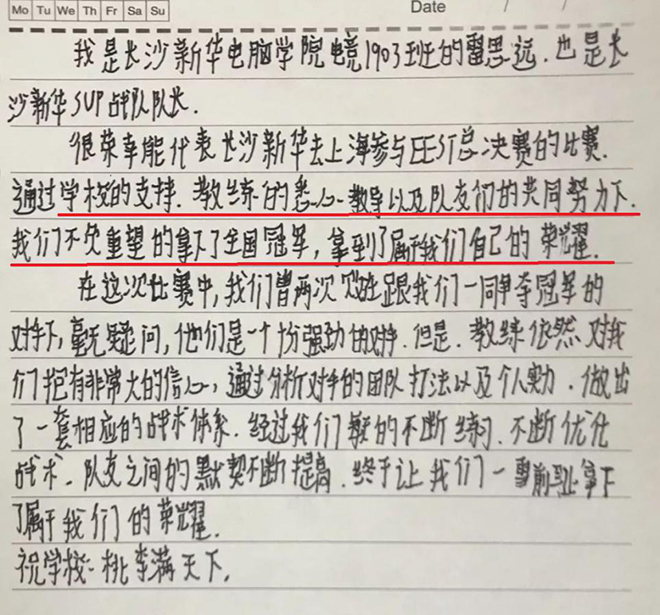 Mo Tu We Th Fr Sa Su Date / /
我是长沙新华电脑学院电竞1903班的雷思远.也是长
沙新华SUP战队队长.
很荣幸能代表长沙新华去上海参与EEST总决赛的比赛.
通过学校的支持.教练的悉心教导以及队友们的共同努力下.
我们不负重望的拿下了全国冠军,拿到了属于我们自己的荣耀.
在这次比赛中,我们曾两次败在跟我们一同争夺冠军的
对手下,毫无疑问,他们是一个扮强劲的对手.但是.教练依然对我
们抱有非常大的信心,通过分析对手的团队打法以及个人实力.做出
了一套相应的战术体系.经过我们的不断练习.不断优化
战术.队友之间的默契不断提高.终于让我们一雪前耻拿下
了属于我们的荣耀.
祝学校:桃李满天下.